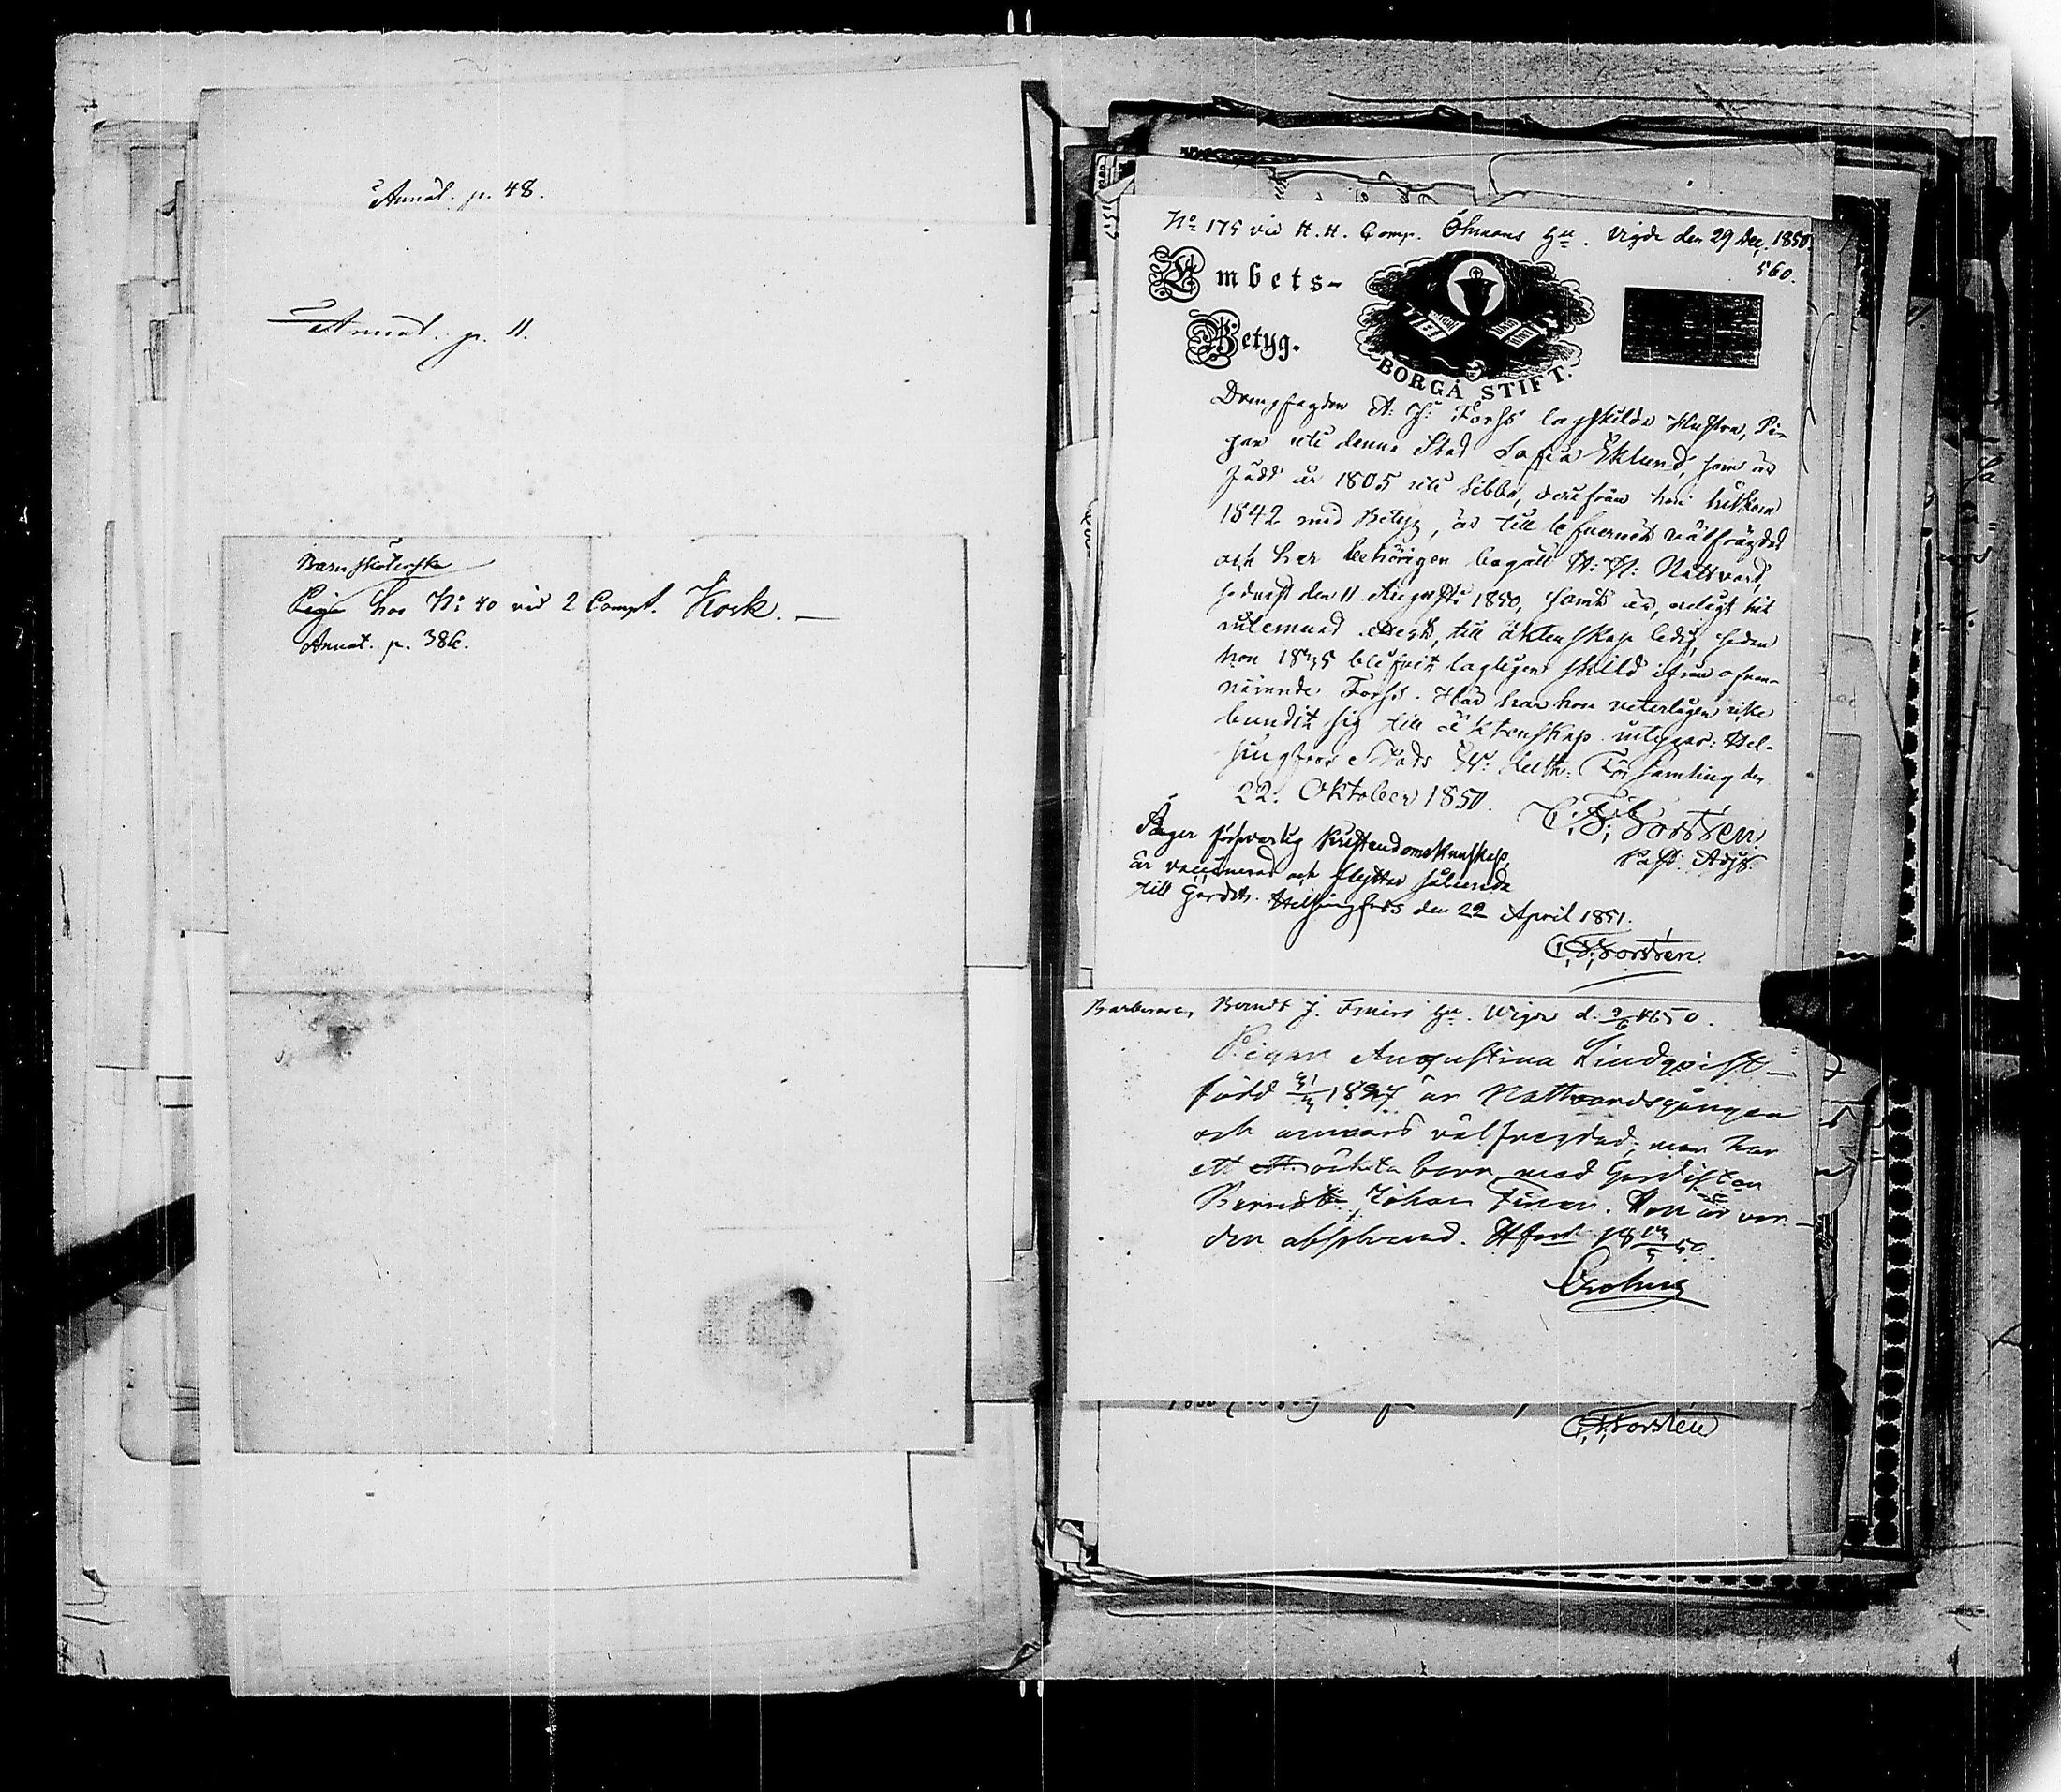 Annot. p. 48.
Annot. p. 11.
Barnsköterska
Piga hos No 40 vid 2 Compt. Kock. —
Annot. p. 386.
No 175 vid H. H. Comp. Öhmans Hu. Vigde den 29 Dec. 1850
560.
Embets-
Betyg.
BORGÅ STIFT.
A. J. Forss lagskilda Hustru, Pi-
gan uti denna Stad Sofia Eklund, som är
född år 1805 uti Sibbo, derifrån hon hitkom
1842 med Betyg, är till lefvernet välfrägdad
och har behörigen begått H. H. Nattvard,
sednast den 11 Augusti 1850, samt är, enligt hit
attest, till äktenskap ledig, sedan
hon 1835 blifvit lagligen skild ifrån ofvan-
nämnde Forss. Här har hon veterligen icke
bundit sig till äktenskap. intygar: Hel-
singfors Stads Ev. Luth. Församling den
22. Oktober 1850.
C. F. Forstén.
Past. Adj.
Äger försvarlig Kristendomskunskap,
är vaccinerad och flyttar sålunda
till Gardet. Helsingfors den 22 April 1851.
C. F. Forstén.
Barberaren Berndt J. Hu. Vigde d. 9/6 1850.
Pigan Augustina Lindqvist —
född 1827 är Nattvardsgången
och annars välfrägdad, men har
ett oäkta barn med Gardisten
Berndt Johan. Hon är vor-
den absolverad. Hfors 1850.
C. F. Forstén